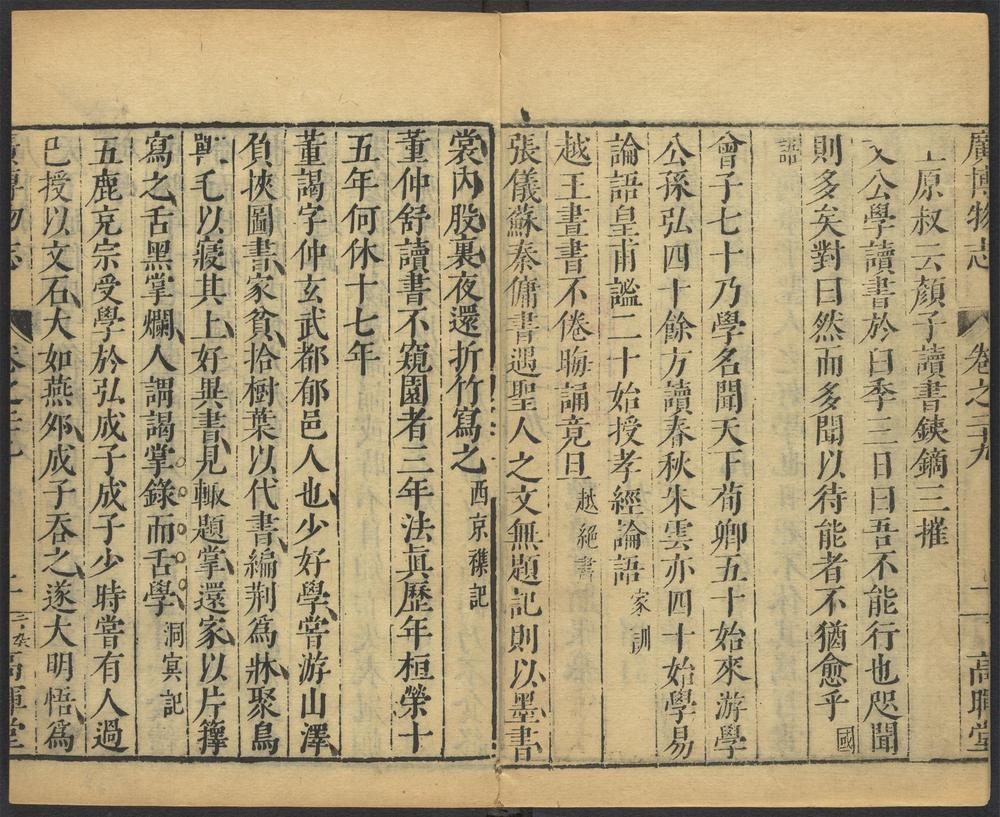 廣博物志 卷之二十九 二 高暉堂
原叔云顏子讀書鐵鏑三摧
文公學讀書於臼季三日曰吾不能行也咫聞
則多矣對曰然而多聞以待能者不猶愈乎 國
語
曾子七十乃學名聞天下荀卿五十始來游學
公孫弘四十餘方讀春秋朱雲亦四十始學易
論語皇甫謐二十始授孝經論語 家訓
越王晝書不倦晦誦竟旦 越絕書
張儀蘇秦傭書遇聖人之文無題記則以墨書
裳內股裏夜還折竹寫之 西京襍記
董仲舒讀書不窺園者三年法眞歷年桓榮十
五年何休十七年
董謁字仲玄武都郁邑人也少好學嘗游山澤
負挾圖書家貧拾樹葉以代書編荆爲牀聚鳥
獸毛以寢其上好異書見輙題掌還家以片籜
寫之舌黑掌爛人謂謁掌錄而舌學 洞冥記
五鹿充宗受學於弘成子成子少時嘗有人過
巳授以文石大如燕夘成子吞之遂大明悟爲